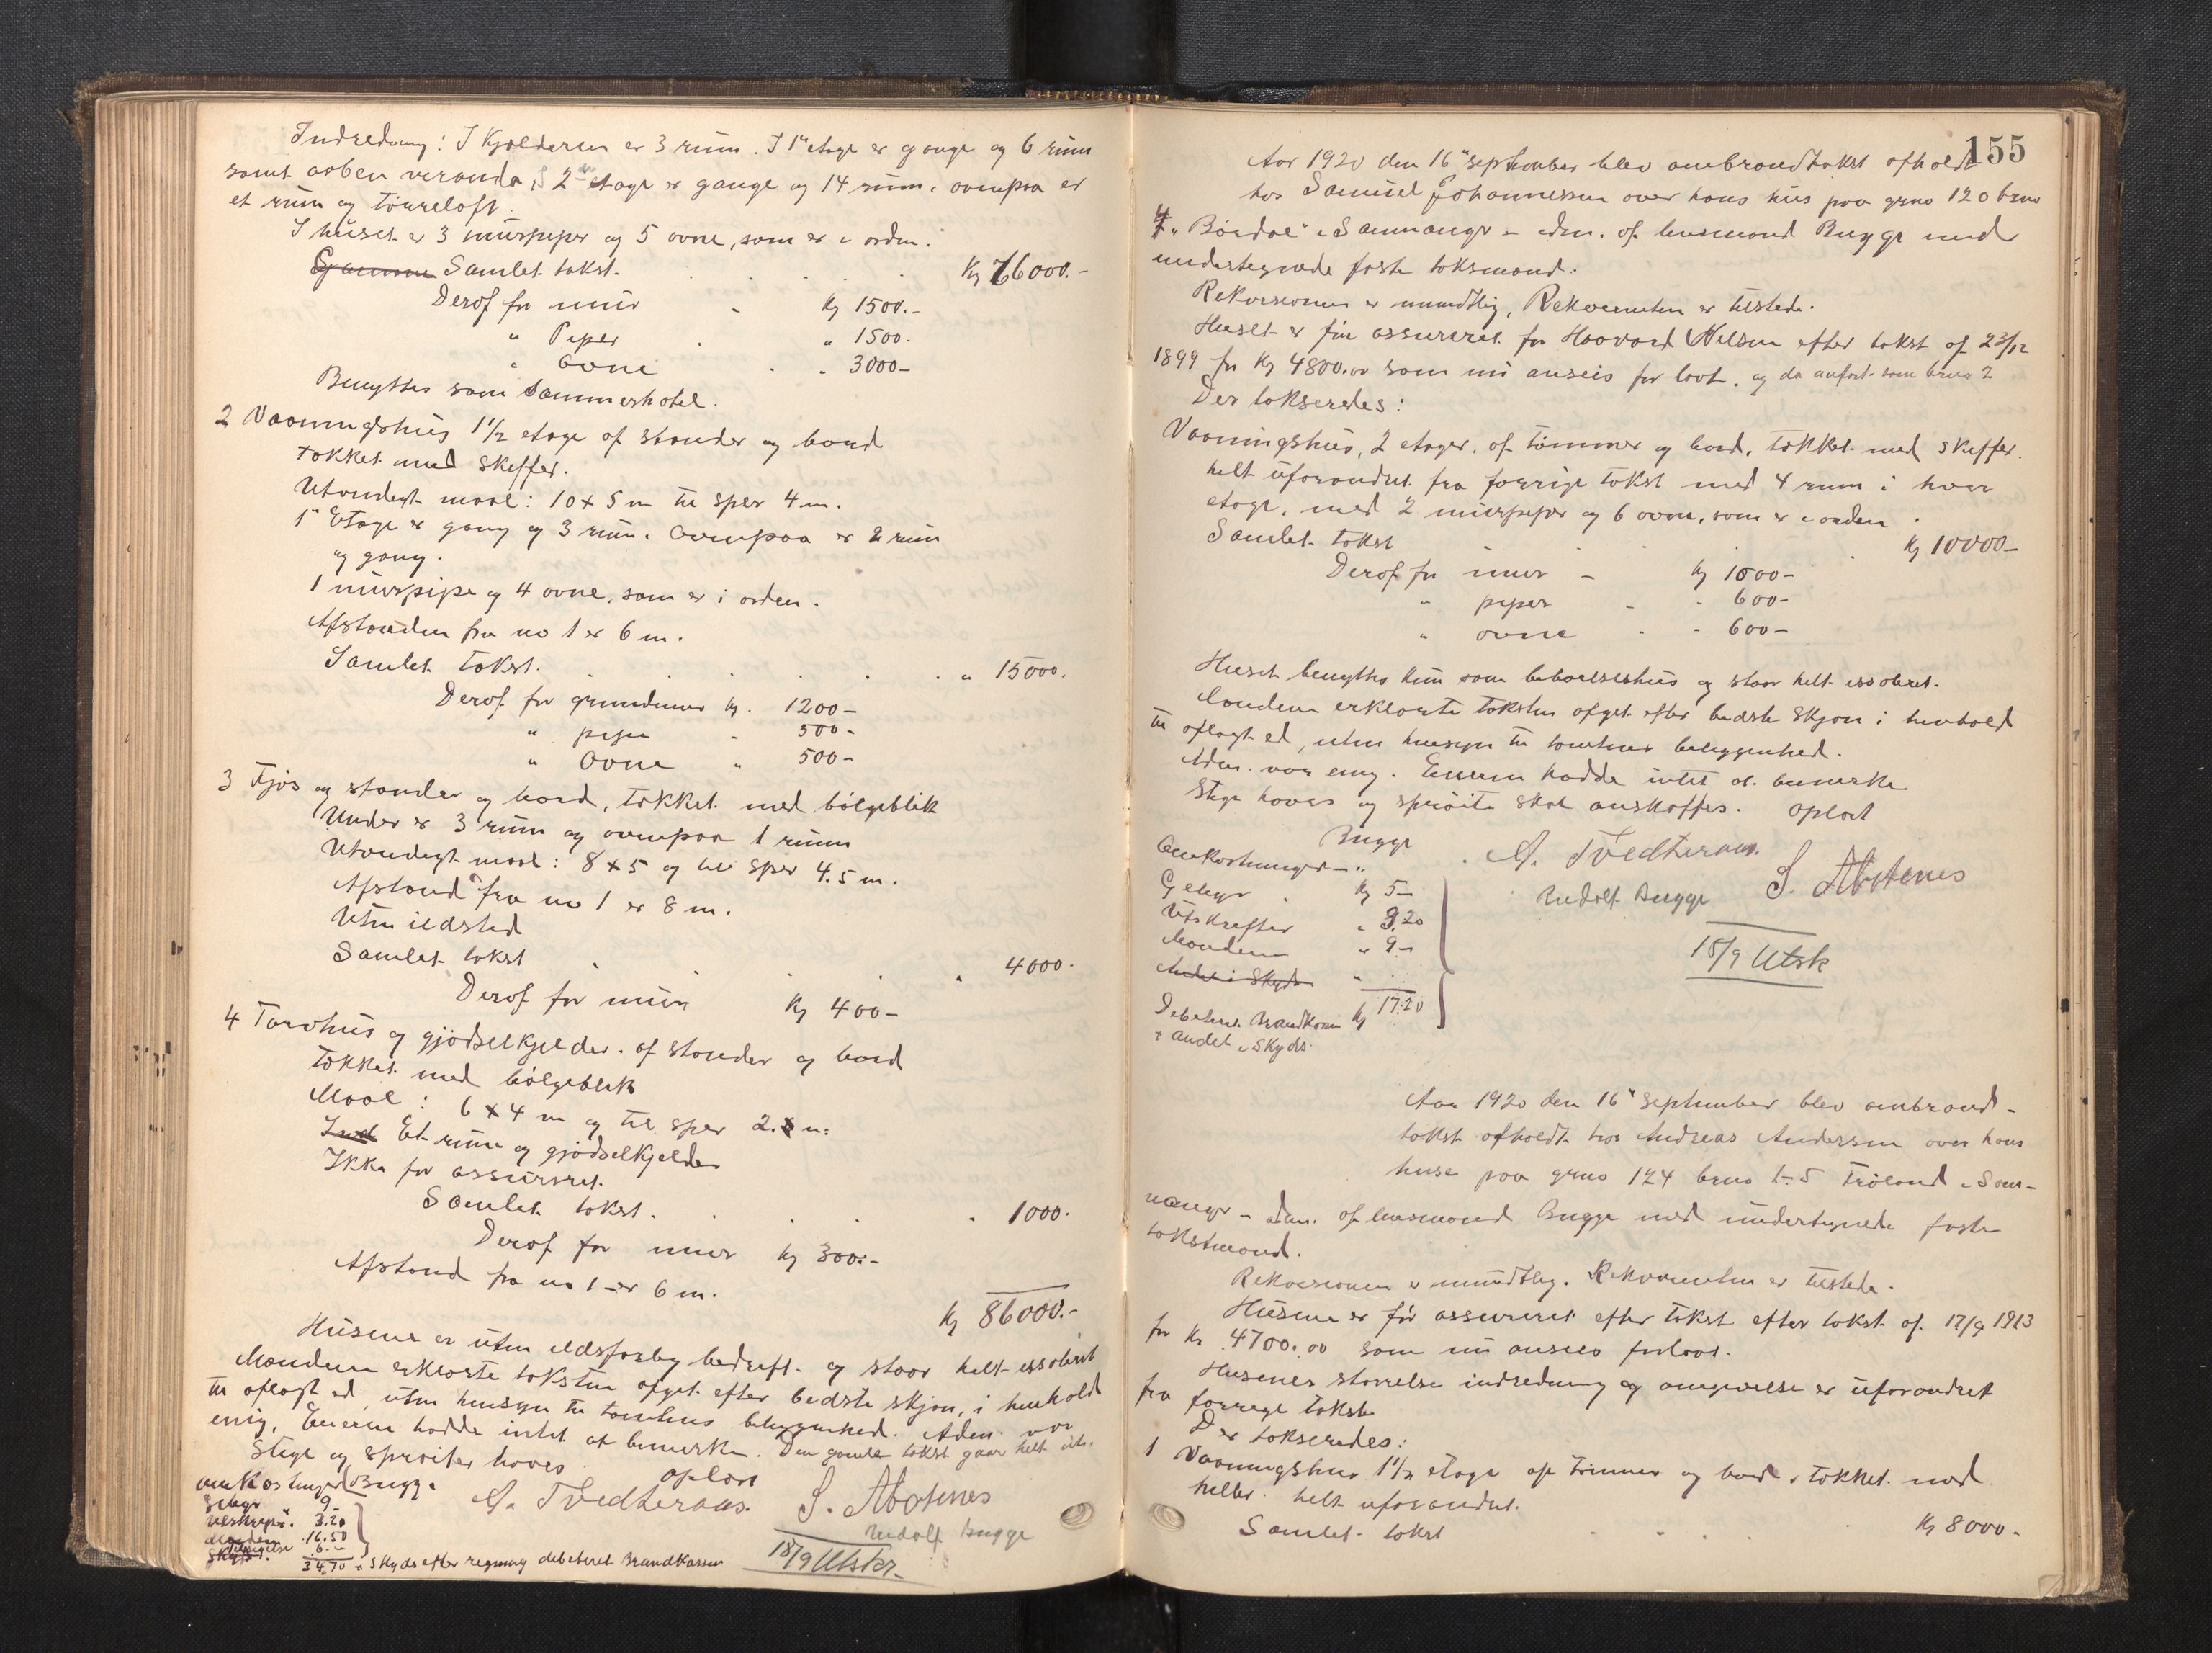 Indredning: I Kjælderen er 3 rum. I 1ste etage er gange og 6 rum
samt aaben veranda, I 2den etage er gange og 14 rum. ovenpaa er
et rum og tørreloft.
I huset er 3 murpiper og 5 ovne, som er i orden.
Samlet takst. Kr 66000.-
Deraf for mur Kr 1500.-
" Piper " 1500.
" Ovne " 3000-
Benyttes som Sommerhotel.
2 Vaaningshus 1 1/2 etage af stander og bord
tækket med skiffer.
Utvendigt maal: 10 x 5 m til spær 4 m.
1ste Etage er gang og 3 rum. Ovenpaa er 2 rum
og gang.
1 murpipe og 4 ovne, som er i orden.
Afstanden fra no 1 er 6 m.
Samlet takst. " 15000.
Deraf for grundmur Kr. 1200-
" pipe " 500-
" Ovne " 500-
3 Fjøs og stander og bord, tækket med bølgeblik
Under er 3 rum og ovenpaa 1 rum
Utvendigt maal: 8 x 5 og til spær 4.5 m.
Afstand fra no 1 er 8 m.
Uten ildsted
Samlet takst " 4000.
Deraf for mur Kr 400-
4 Torvhus og gjødselkjelder. af stander og bord
tækket med bølgeblik
Maal: 6 x 4 m og til spær 2. m.
Et rum og gjødselkjelder
Ikke før assureret.
Samlet takst. " 1000.
Deraf for mur Kr 300.-
Afstand fra no 1 er 6 m.
Kr 86000.-
Husene er uten ildsfarlig bedrift og staar helt issoleret
Mændene erklærte taksten afgit efter bedste skjøn, i henhold
til aflagt ed, uten hensyn til tomtens beliggenhed. Adm. var
enig, Eieren hadde intet at bemerke. Den gamle takst gaar helt ut.
Stige og sprøiter haves
oplæst
Omkostninger Bugge
A. Tvedteraas. S. Aløtenes
Rudolf Bugge
Gebyr 9-
Utskrift. 3.20
Mændene 16.50
6.-
34.70 + Skyds efter regning debiteret Brandkassen
18/9 Utskr.
155
Aar 1920 den 16de September blev ombrandtakst afholdt
hos Samuel Johannessen over hans hus paa grno 120 brno
4 "Børdal" i Samnanger - adm. af lensmand Bugge med
undertegnede faste taksmænd.
Rekvisionen er mundtlig, Rekvirenten er tilstede.
Huset er før assureret for Haavard Nilsen efter takst af 23/12
1899 for Kr 4800.00 som nu ansees for lavt. og da anført som brno 2
Der takseredes:
Vaaningshus, 2 etager, af tømmer og bord, tækket med skiffer.
helt uforandret fra forrige takst med 4 rum i hver
etage, med 2 murpiper og 6 ovne, som er i orden.
Samlet takst Kr 10000-
Deraf for mur - Kr 1000-
" piper - " 600-
" ovne " 600-
Huset benyttes kun som beboelseshus og staar helt issoleret.
Mændene erklærte taksten afgit efter bedste skjøn i henhold
til aflagt ed, uten hensyn til tomtens beliggenhed.
Adm. var enig. Eieren hadde intet at bemerke
Stige haves og sprøite skal anskaffes. oplæst
Bugge
A. Tvedteraas. S. Aløtenes
Rudolf Bugge
Omkostninger - "
Gebyr Kr 5-
Utskrifter " 3.20
Mændene " 9-
Kr 17.20
Debiteres Brandkassen
+ andel i Skyds.
18/9 Utsk
Aar 1920 den 16de September blev ombrand-
takst afholdt hos Andreas Andersen over hans
huse paa grno 124 brno 1-5 Frøland i Sam-
nanger - adm. af lensmand Bugge med undertegnede faste
takstmænd.
Rekvisionen er mundtlig. Rekvirenten er tilstede.
Husene er før assureret efter takst efter takst af 17/9 1913
for Kr 4700.00 som nu ansees for lavt.
Husenes størrelse indredning og omgivelse er uforandret
fra forrige takst
Der takseredes:
1 Vaaningshus 1 1/2 etage af tømmer og bord, tækket med
heller. helt uforandret.
Samlet takst Kr 8000.